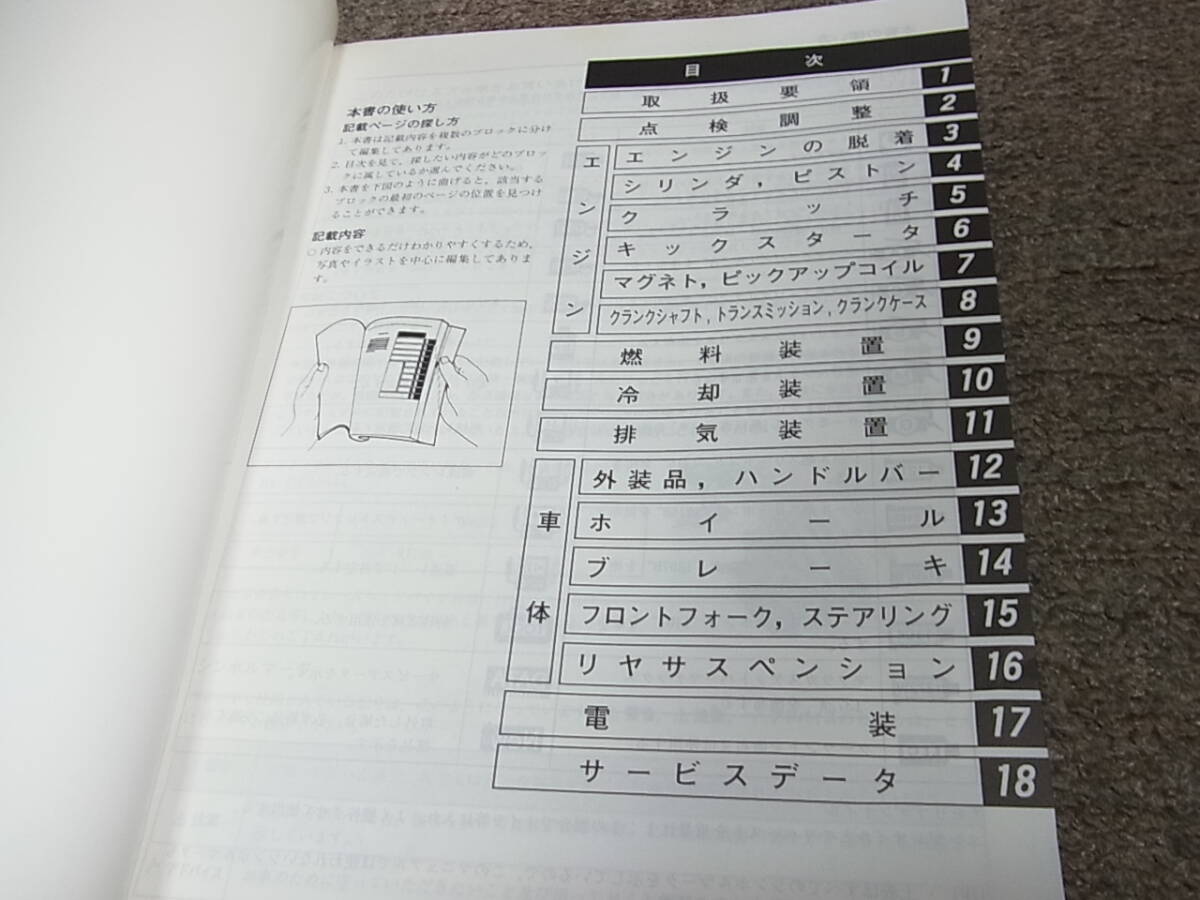 本書の使い方
記載ページの探し方
1. 本書は記載内容を複数のブロックに分け
て編集してあります。
2. 目次を見て、探したい内容がどのブロッ
クに属しているか選んでください。
3. 本書を下図のように曲げると、該当する
ブロックの最初のページの位置を見つけ
ることができます。
記載内容
○ 内容をできるだけわかりやすくするため、
写真やイラストを中心に編集してありま
す。
目次
取扱要領 1
点検調整 2
エンジン
エンジンの脱着 3
シリンダ，ピストン 4
クラッチ 5
キックスタータ 6
マグネト，ピックアップコイル 7
クランクシャフト，トランスミッション，クランクケース 8
燃料装置 9
冷却装置 10
排気装置 11
車体
外装品，ハンドルバー 12
ホイール 13
ブレーキ 14
フロントフォーク，ステアリング 15
リヤサスペンション 16
電装 17
サービスデータ 18